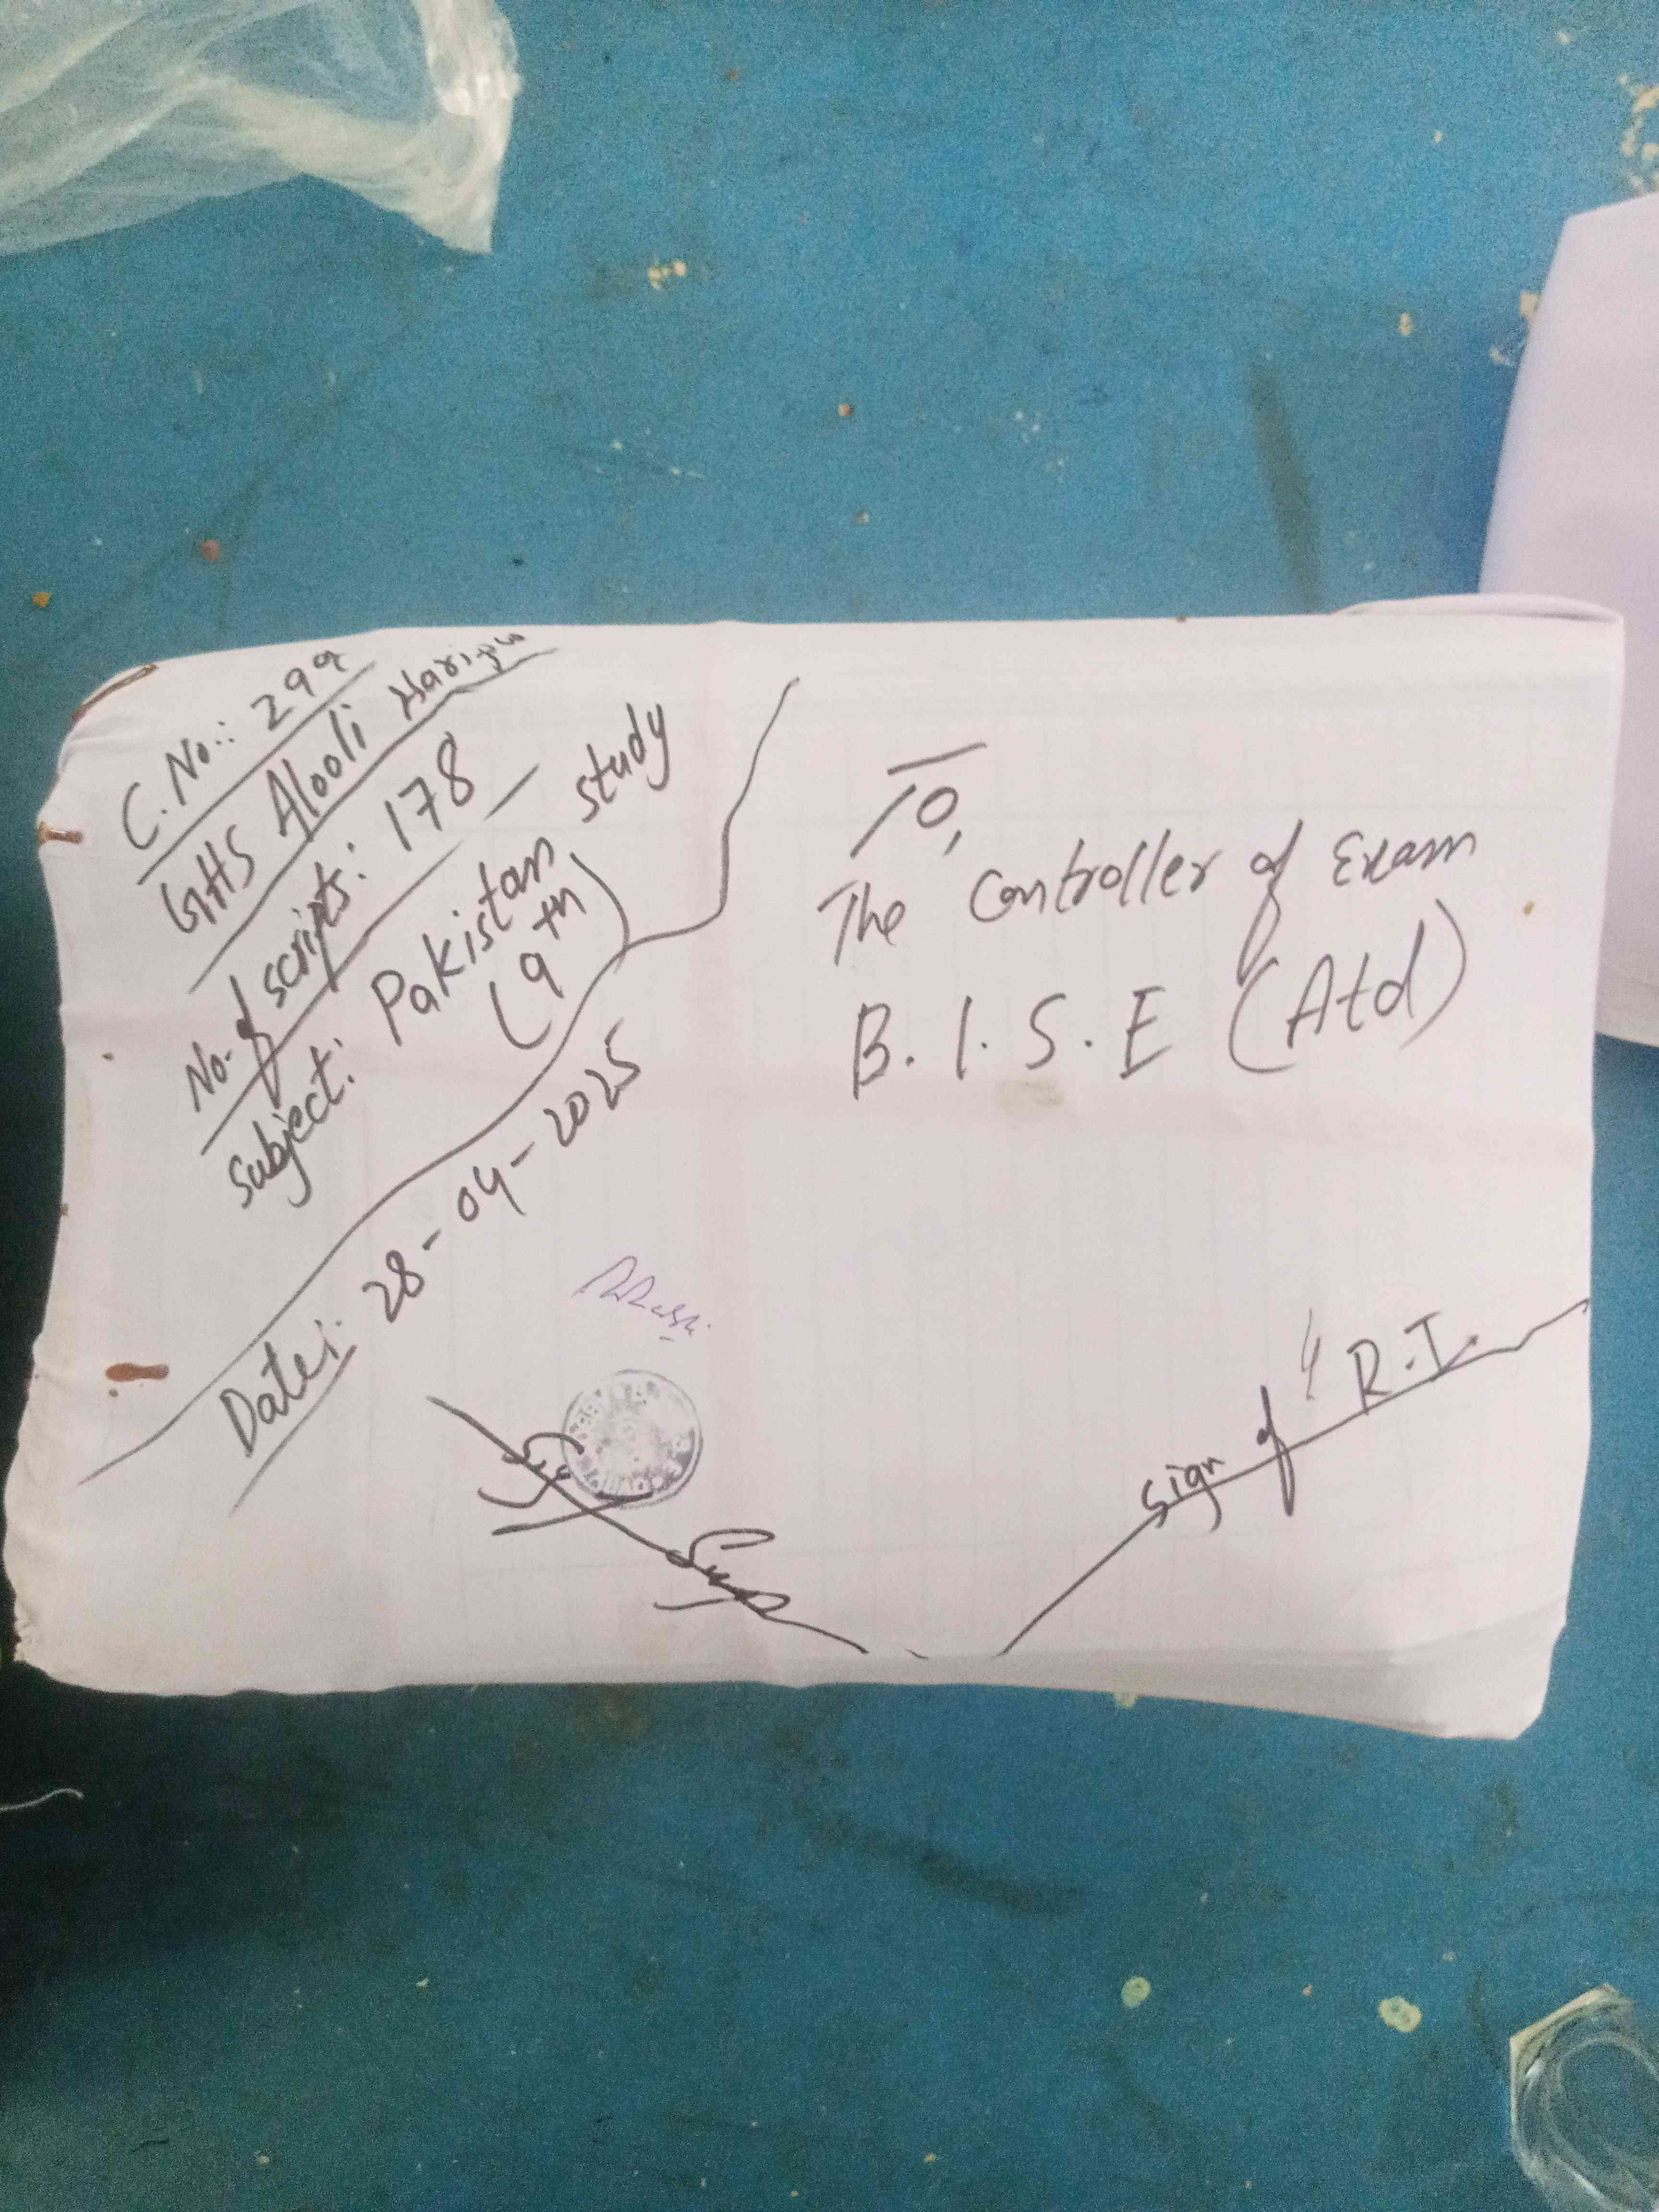 C. No.: 299
GHS Alooli Haripur
No. of scripts: 178
Subject: Pakistan study
(9th)
Date: 28-04-2025
To,
The Controller of Exam
B.I.S.E (Atd)
Sup
sign of R.I.